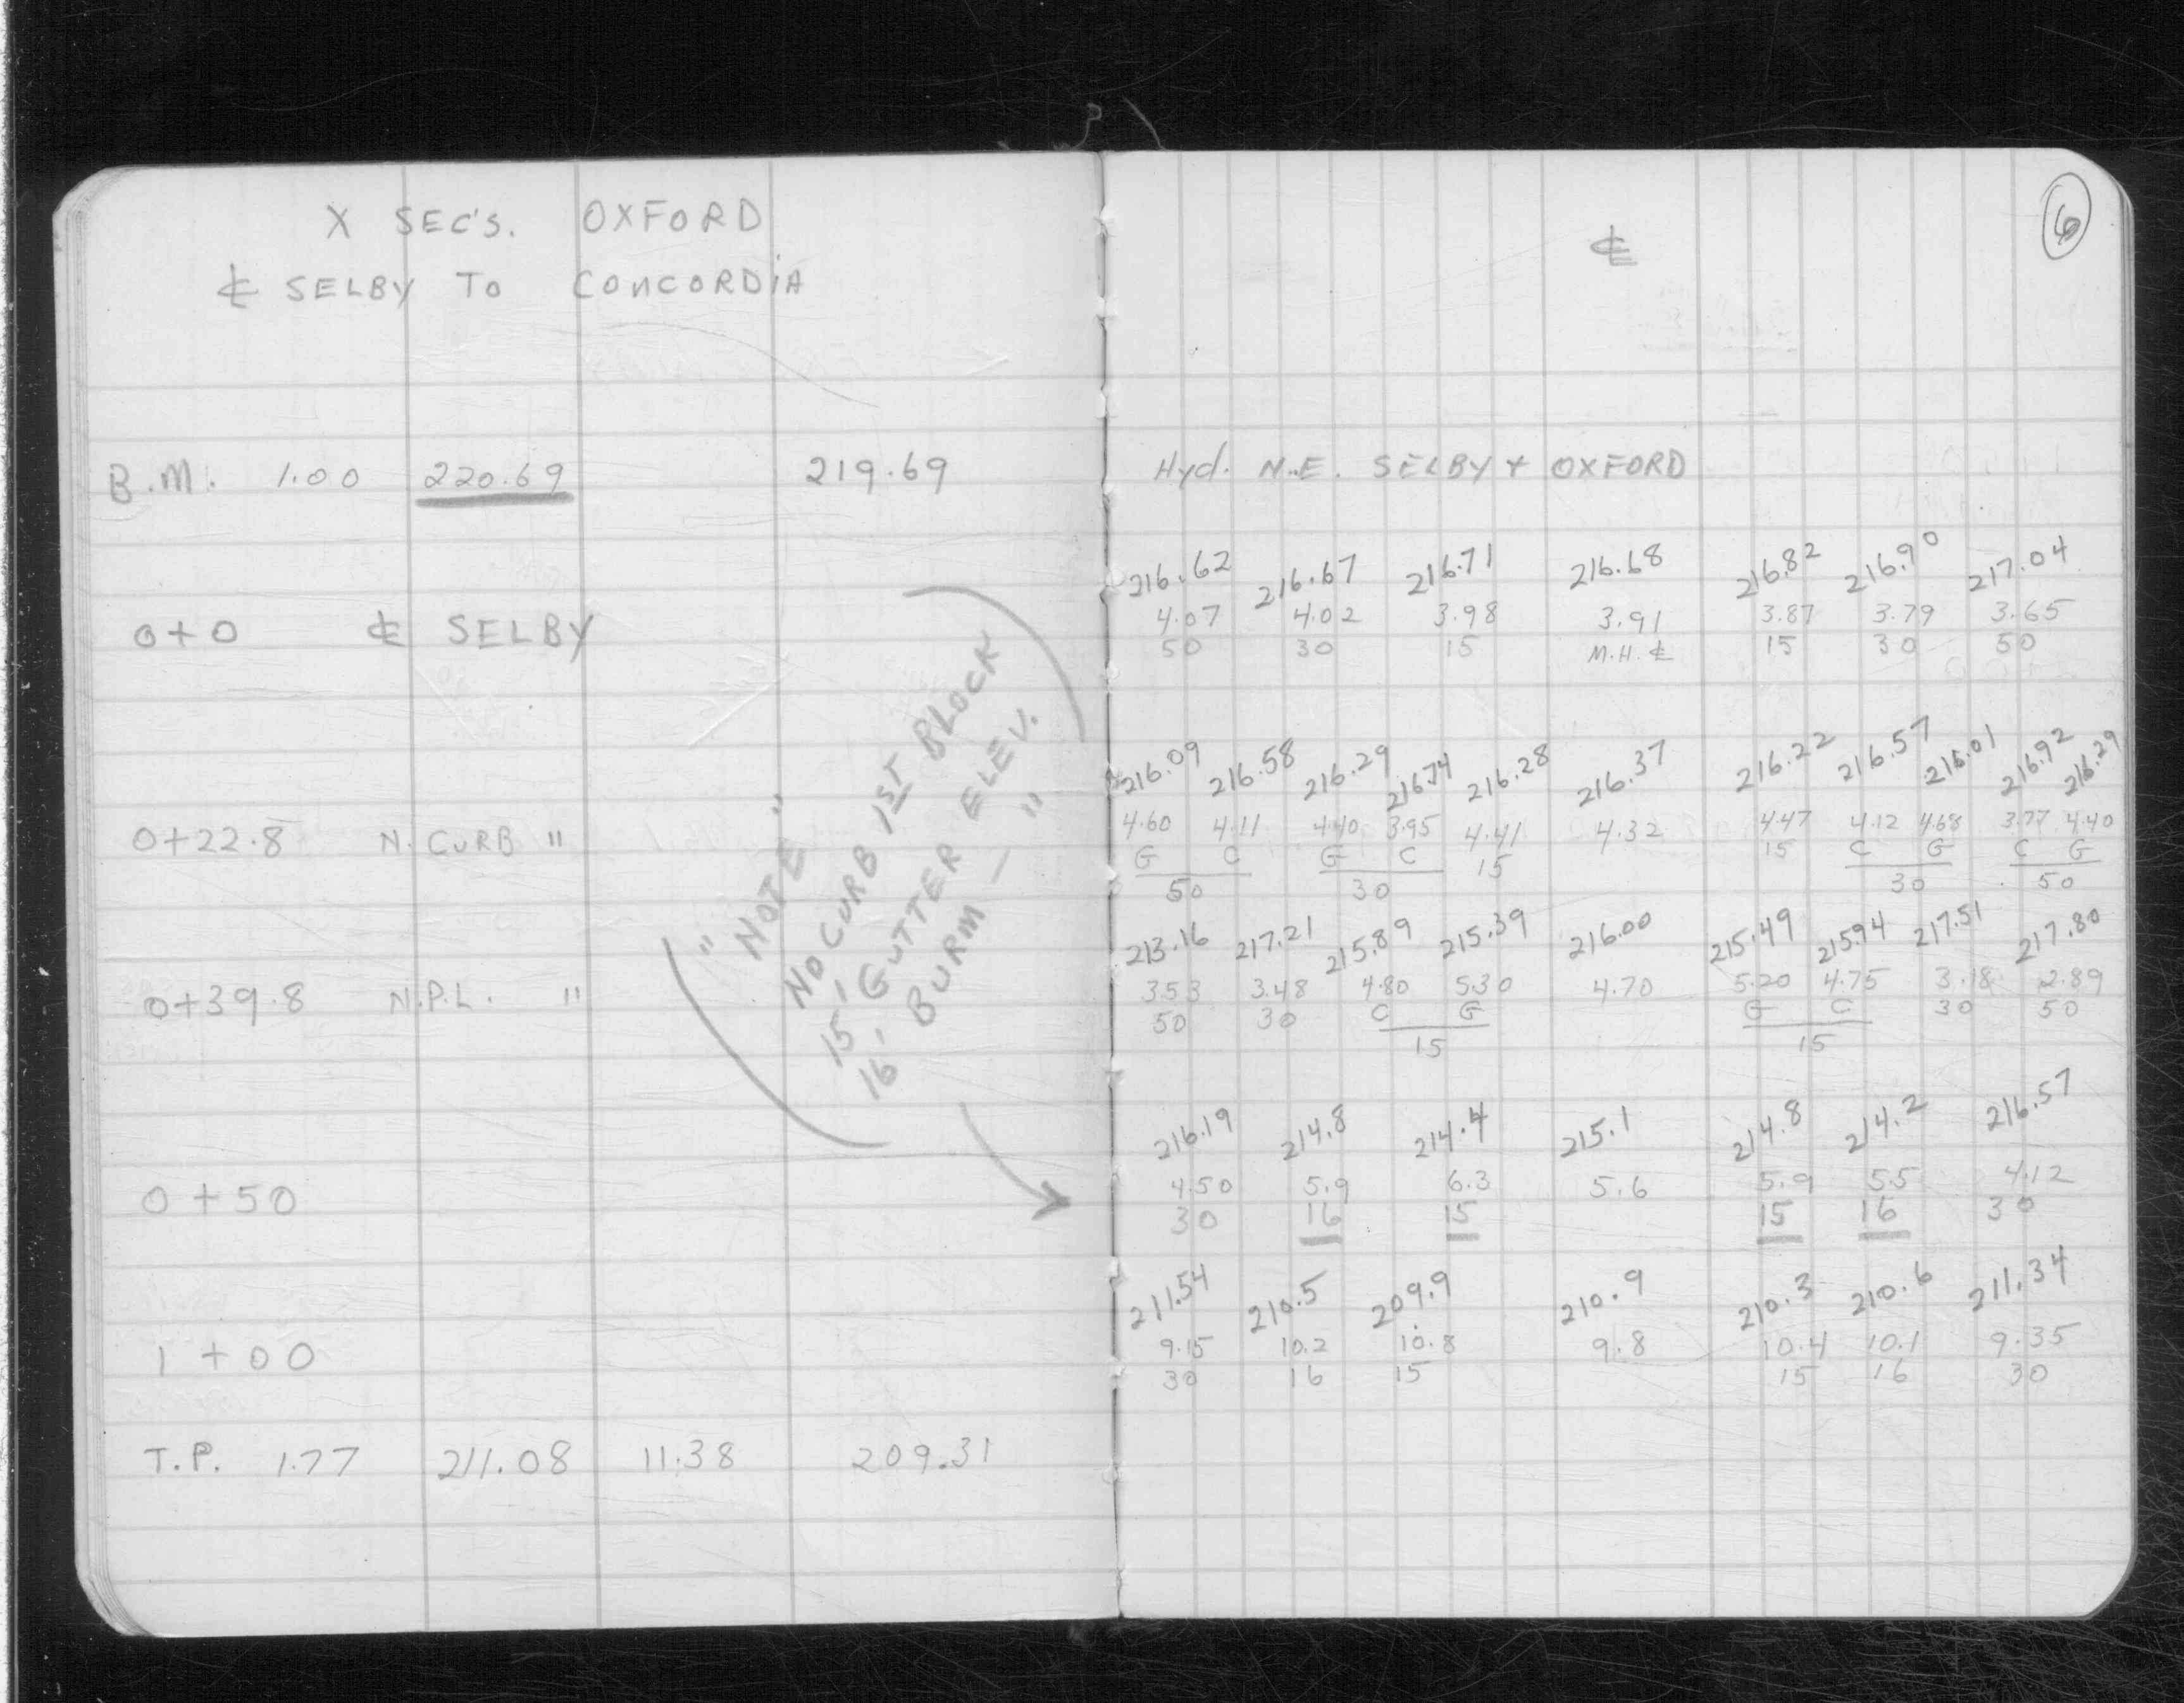 X SEC'S. OXFORD
℄ SELBY TO CONCORDIA
B.M. 1.00 220.69 219.69
0+0 ℄ SELBY
0+22.8 N. CURB "
0+39.8 N.P.L. "
0+50
1+00
T.P. 1.77 211.08 11.38 209.31
"NOTE"
NO CURB 1ST BLOCK
15' GUTTER ELEV.
16' BURM — "
6
℄
Hyd. N.E. SELBY + OXFORD
216.62 216.67 216.71 216.68 216.82 216.90 217.04
4.07 4.02 3.98 3.91 3.87 3.79 3.65
50 30 15 M.H. ℄ 15 30 50
216.09 216.58 216.29 216.74 216.28 216.37 216.22 216.57 216.01 216.92 216.29
4.60 4.11 4.40 3.95 4.41 4.32 4.47 4.12 4.68 3.77 4.40
G C G C 15 15 C G C G
50 30 30 50
213.16 217.21 215.89 215.39 216.00 215.49 215.94 217.51 217.80
3.53 3.48 4.80 5.30 4.70 5.20 4.75 3.18 2.89
50 30 C G G C 30 50
15 15
216.19 214.8 214.4 215.1 214.8 214.2 216.57
4.50 5.9 6.3 5.6 5.9 5.5 4.12
30 16 15 15 16 30
211.54 210.5 209.9 210.9 210.3 210.6 211.34
9.15 10.2 10.8 9.8 10.4 10.1 9.35
30 16 15 15 16 30